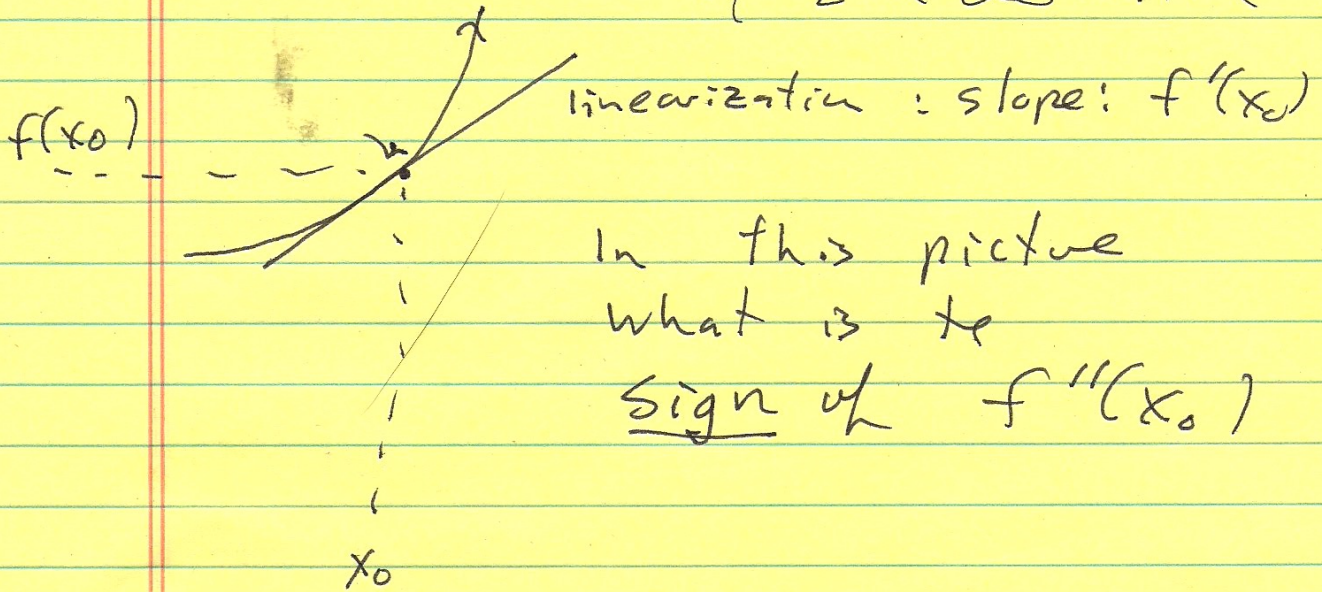 linearization : slope: f'(x₀)
f(x₀)
In this picture
what is te
sign of f"(x₀)
x₀